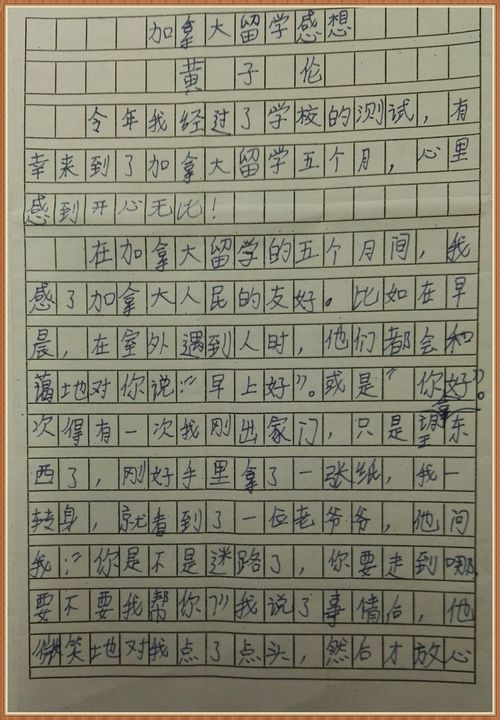 加拿大留学感想
黄子伦
今年我经过了学校的测试，有
幸来到了加拿大留学五个月，心里
感到开心无比！
在加拿大留学的五个月间，我
感了加拿大人民的友好。比如在早
晨，在室外遇到人时，他们都会和
蔼地对你说：“早上好”。或是“你好”。
次得有一次我刚出家门，只是忘拿东
西了，刚好手里拿了一张纸，我一
转身，就看到了一位老爷爷，他问
我：“你是不是迷路了，你要走到哪，
要不要我帮你？”我说了事情后，他
微笑地对我点了点头，然后才放心